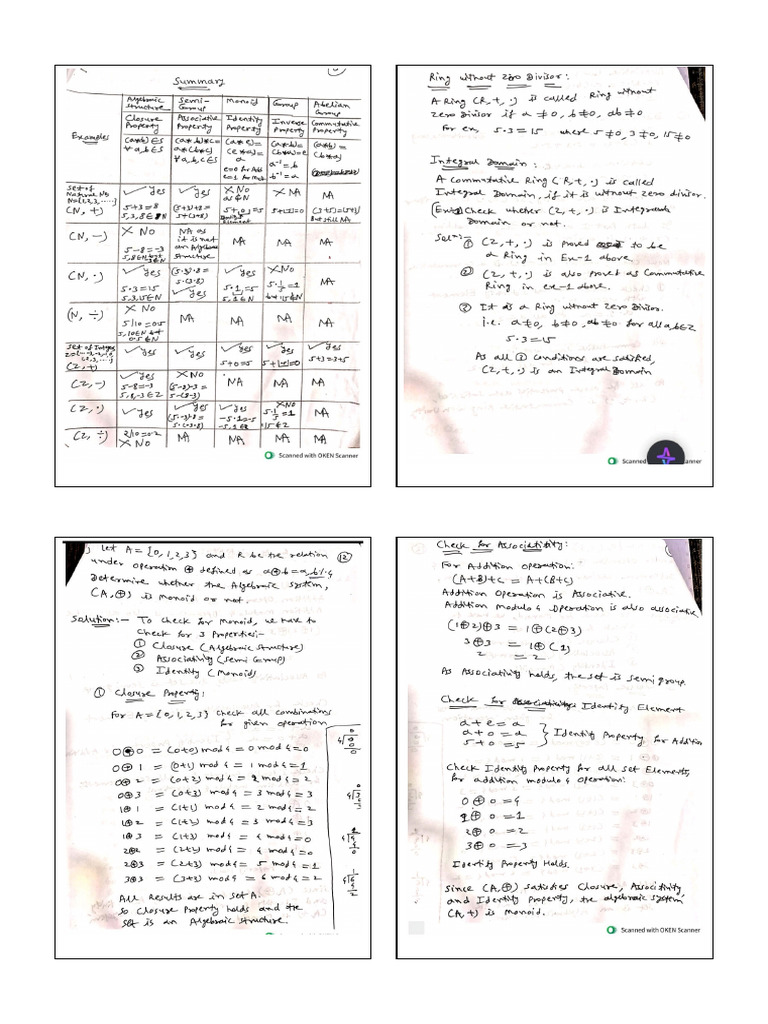 Summary
Algebraic Structure | Semi-Group | Monoid | Group | Abelian Group
Examples | Closure Property | Associative Property | Identity Property | Inverse Property | Commutative Property
(a*b)∈S ∀a,b∈S | (a*b)*c = a*(b*c) ∀a,b,c∈S | (a*e)= (e*a)= a e=0 for Add | (a*b)= (b*a)=e a⁻¹=b b⁻¹=a | (a*b)= (b*a)
Set of Natural Nos N={1,2,3,....} (N,+) | ✓Yes 5+3=8 5,3,8∈N | ✓Yes (5+3)+8= 5+(3+8) | ✗No as 0∉N 5+[0]=5 | ✗NA | NA (3+5)=(5+3) But still NA
(N,-) | ✗ No 5-8=-3 | NA as it is not an Algebraic Structure | NA | NA | NA
(N,·) | ✓Yes 5·3=15 5,3,15∈N | (5·3)·8= 5·(3·8) ✓Yes | ✓Yes 5·1=5 5,1∈N | ✗No 5·1/5=1 | NA
(N,÷) | ✗ No 5/10=0.5 5,10∈N but 0.5∉N | NA | NA | NA | NA
Set of Integers (Z,+) | ✓Yes | ✓Yes | ✓Yes 5+0=5 | ✓Yes | ✓Yes 5+3=3+5
(Z,-) | ✓Yes 5-8=-3 5,8,-3∈Z | ✗No (5-8)-3= 5-(8-3) | NA | NA | NA
(Z,·) | ✓Yes | ✓Yes (5·-3)·8= 5·(-3·8) | ✓Yes -5·1=-5 -5,1∈Z | ✗No 5·1/5=1 | NA
(Z,÷) | 2/10=0.2 ✗ No | NA | NA | NA | NA
Scanned with OKEN Scanner
Ring without zero Divisor:
A Ring (R,+,·) is called Ring without
zero Divisor if a≠0, b≠0, ab≠0
For ex, 5·3=15 where 5≠0, 3≠0, 15≠0
Integral Domain:
A Commutative Ring (R,+,·) is called
Integral Domain, if it is without zero divisor.
Check whether (Z,+,·) is Integral
Domain or not.
Soln:-
① (Z,+,·) is proved to be
a Ring in Ex-1 above.
② (Z,+,·) is also proved as Commutative
Ring in ex-1 above.
③ It is a Ring without zero Divisor.
i.e. a≠0, b≠0, ab≠0 for all a,b∈Z
5·3=15
As all ③ conditions are satisfied,
(Z,+,·) is an Integral Domain
Scanner
) Let A={0,1,2,3} and R be the relation ⑫
under operation ⊕ defined as a⊕b=a+b%4
Determine whether the Algebraic System,
(A,⊕) is monoid or not.
Solution:- To check for Monoid, we have to
check for 3 Properties:-
① Closure (Algebraic Structure)
② Associativity (Semi Group)
③ Identity (Monoid)
① Closure Property:
For A={0,1,2,3} check all combinations
for given operation
0⊕0 = (0+0) mod 4 = 0 mod 4 = 0
0⊕1 = (0+1) mod 4 = 1 mod 4 = 1
0⊕2 = (0+2) mod 4 = 2 mod 4 = 2
0⊕3 = (0+3) mod 4 = 3 mod 4 = 3
1⊕1 = (1+1) mod 4 = 2 mod 4 = 2
1⊕2 = (1+2) mod 4 = 3 mod 4 = 3
1⊕3 = (1+3) mod 4 = 4 mod 4 = 0
2⊕2 = (2+2) mod 4 = 4 mod 4 = 0
2⊕3 = (2+3) mod 4 = 5 mod 4 = 1
3⊕3 = (3+3) mod 4 = 6 mod 4 = 2
All Results are in set A.
So Closure Property holds and the
set is an Algebraic Structure.
Check for Associativity:
For Addition operation:
(A+B)+C = A+(B+C)
Addition Operation is Associative.
Addition modulo 4 Operation is also associative
(1⊕2)⊕3 = 1⊕(2⊕3)
3⊕3 = 1⊕(1)
2 = 2
As Associativity holds, the set is semigroup.
Check for Identity Element
a+e=a
a+0=a } Identity Property for Addition
5+0=5
Check Identity Property for all set Elements,
for addition modulo 4 operation:
0⊕0=4
1⊕0=1
2⊕0=2
3⊕0=3
Identity Property Holds.
Since (A,⊕) satisfies Closure, Associtivity,
and Identity Property, the algebraic system
(A,+) is monoid.
Scanned with OKEN Scanner